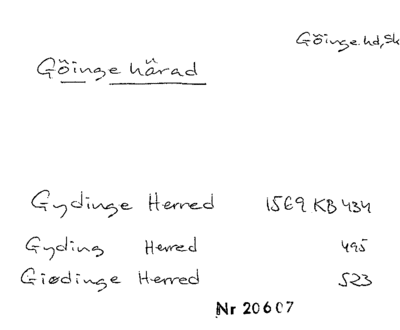 Göinge hd, Sk
Göinge härad
Gydinge Herred 1569 KB 434
Gyding Herred 495
Giødinge Herred 523
Nr 20607